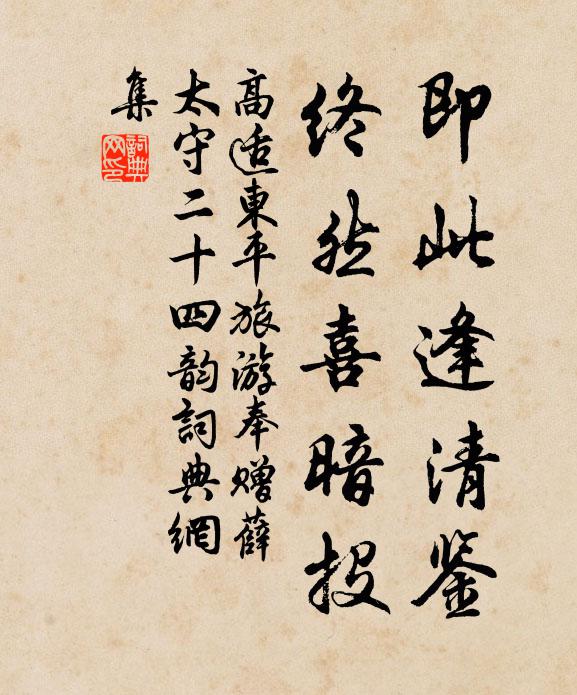 即此逢清鉴
终然喜暗投
高适東平旅游奉赠薛
太守二十四韵詞典網
集
詞典網印